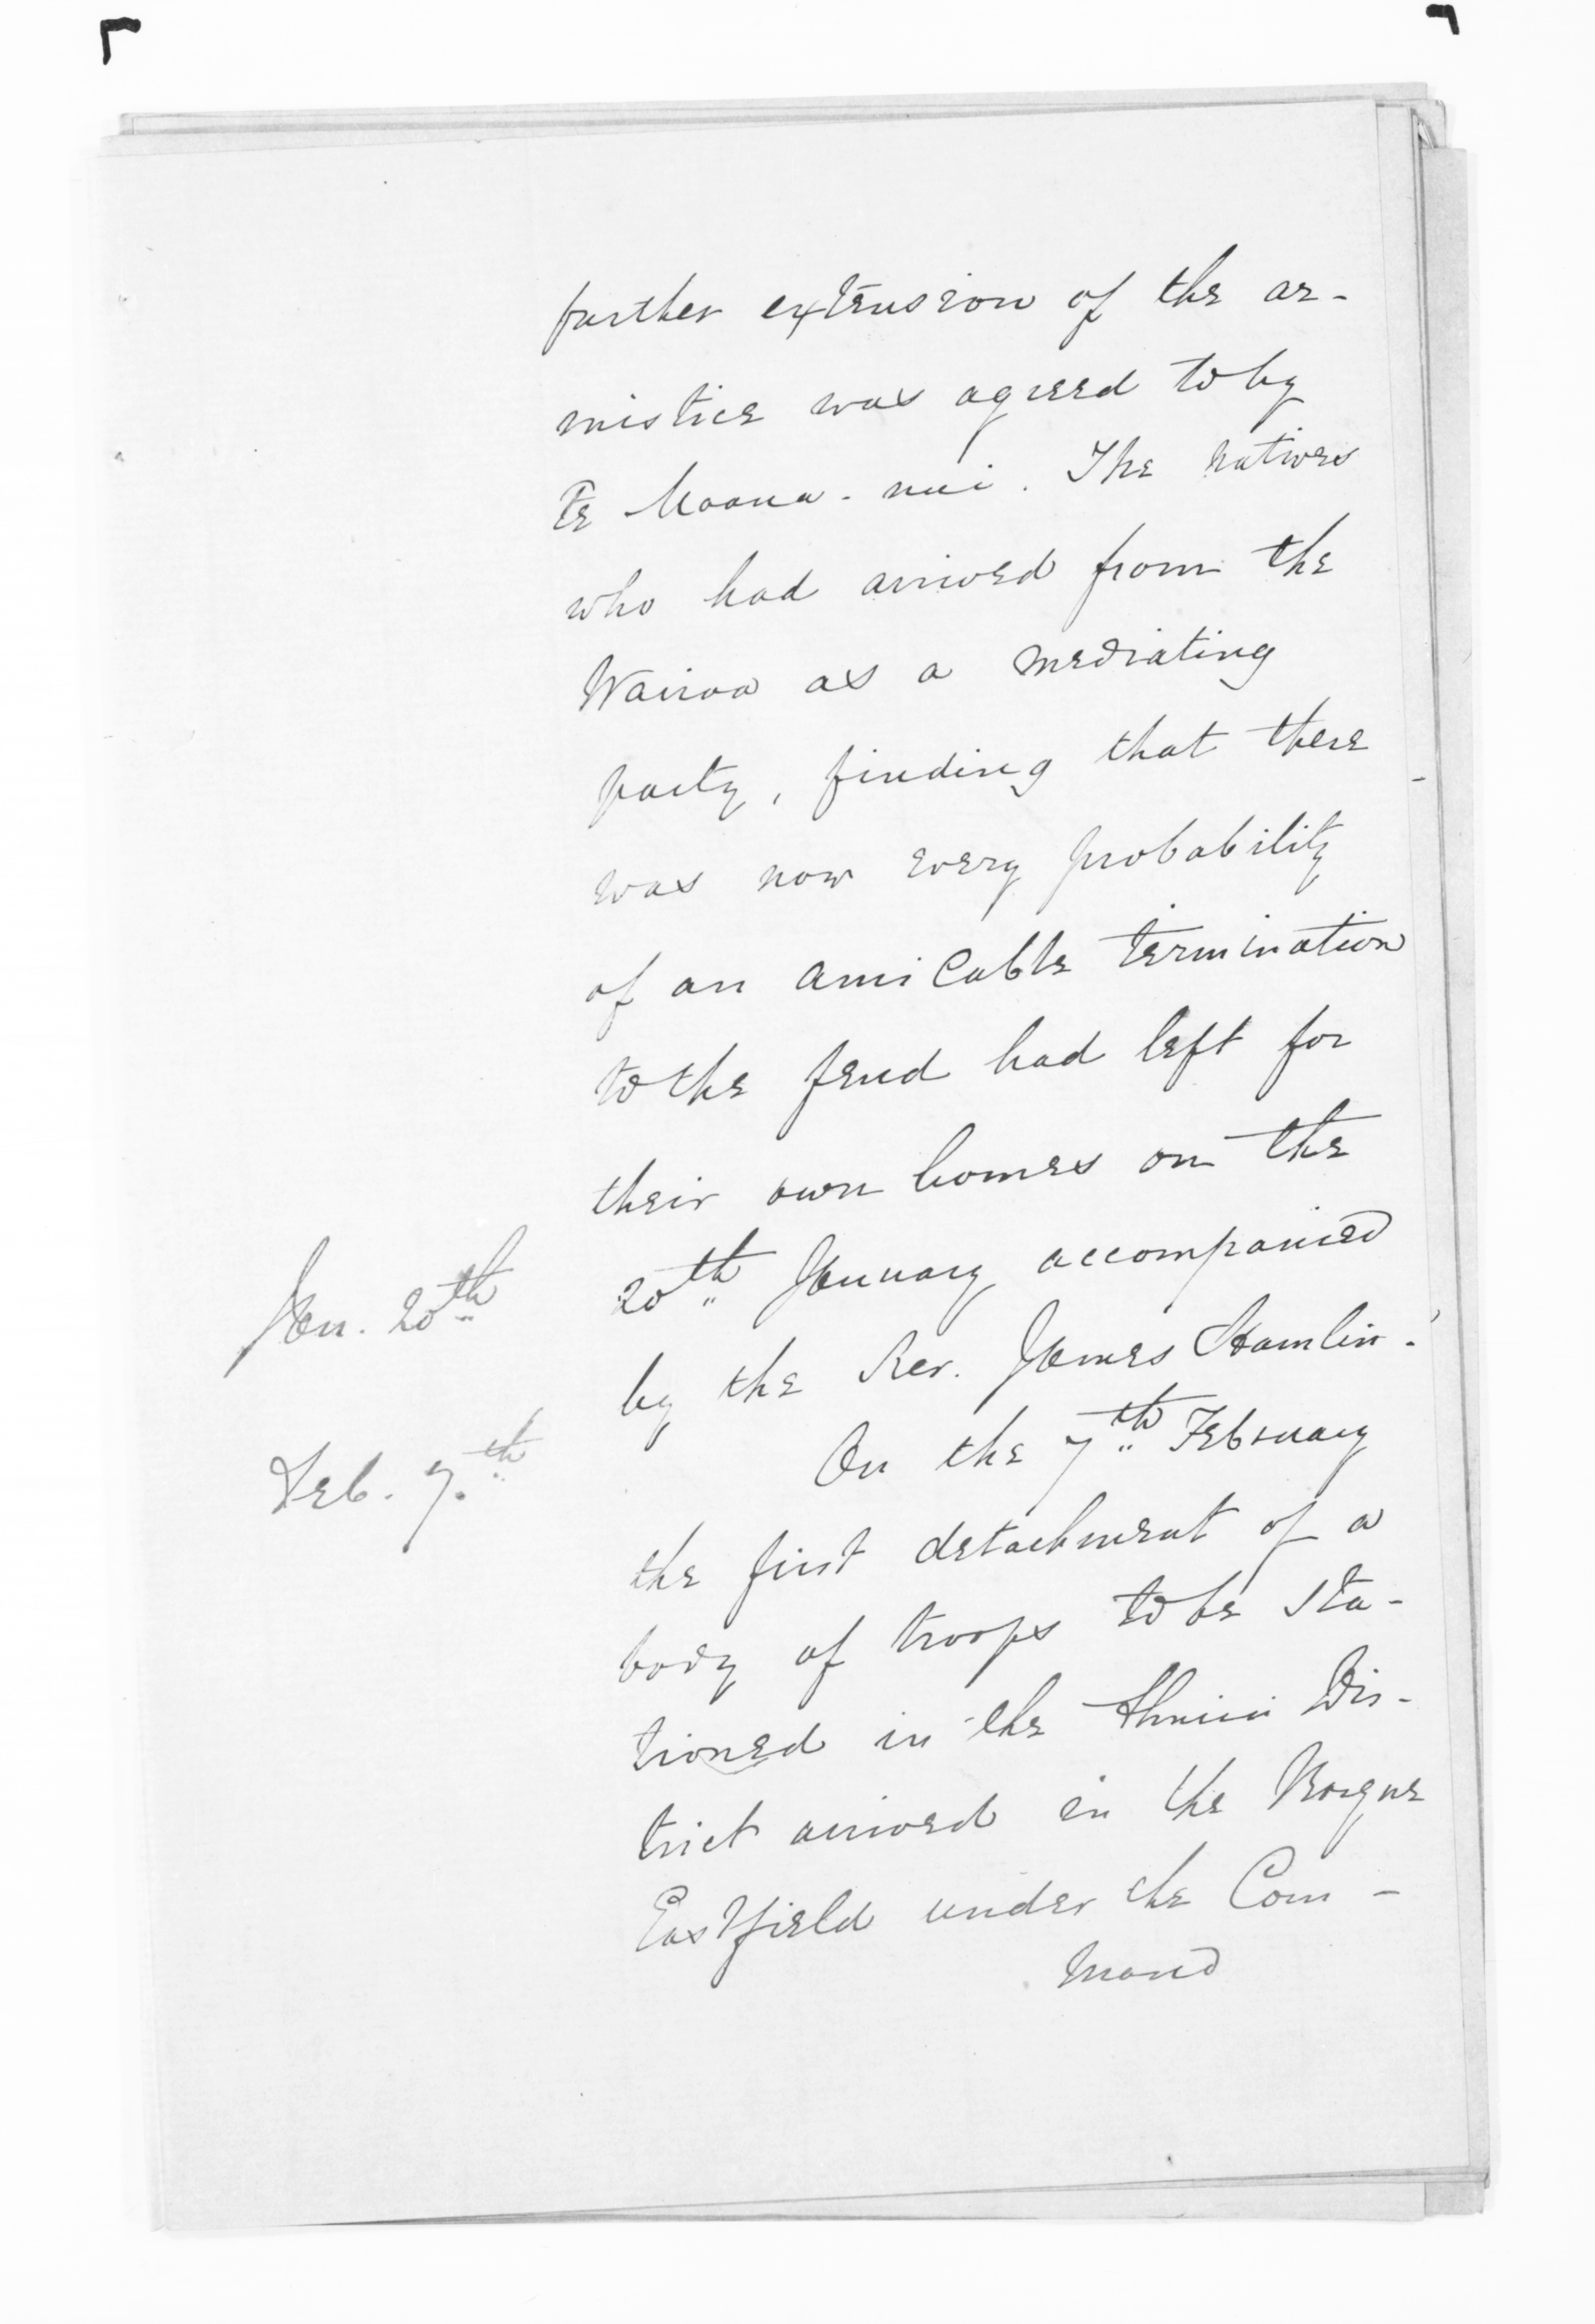 further extension of the ar-
mistice was agreed to by
Te Moana-nui. The natives
who had arrived from the
Wairoa as a mediating
party, finding that there
was now every probability
of an amicable termination
to the feud had left for
their own homes on the
Jan. 20th
20th January accompanied
by the Rev. James Hamlin.
Feb. 7th
On the 7th February
the first detachment of a
body of troops to be sta-
tioned in the Ahuriri Dis-
trict arrived in the Barque
Eastfield under the Com-
mand